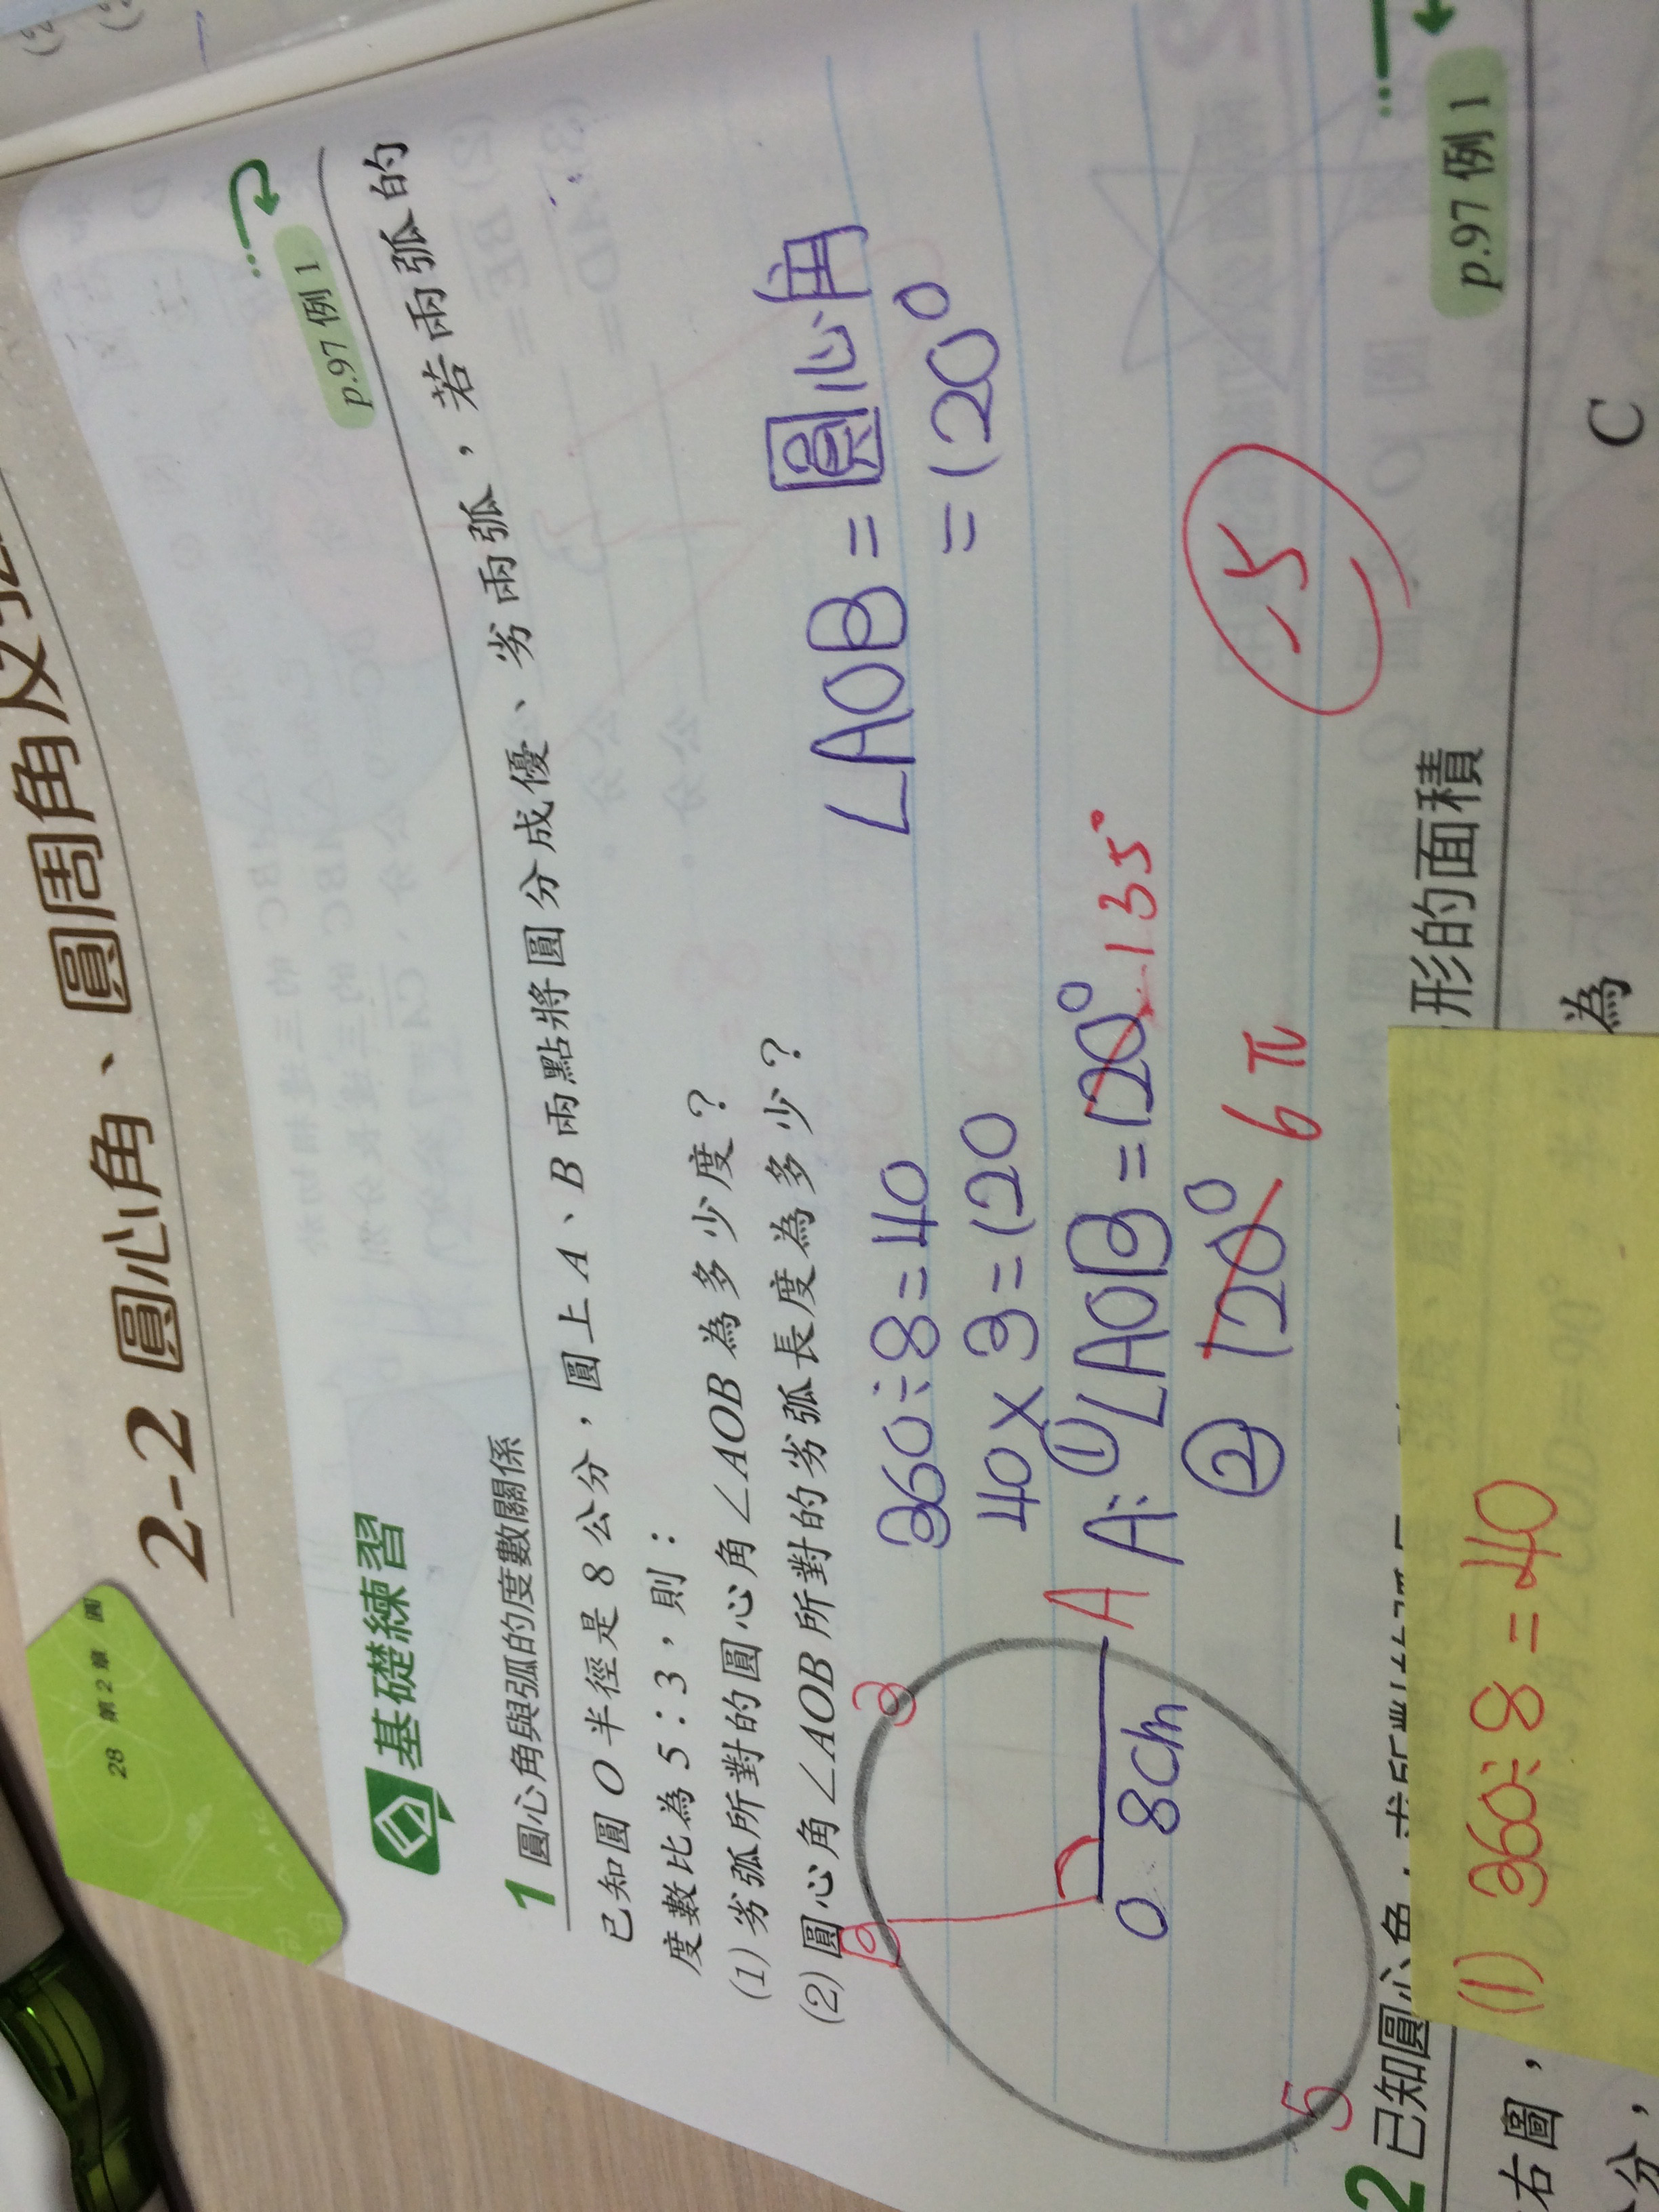 28 第2章 圓
2-2 圓心角、圓周角及
基礎練習
1 圓心角與弧的度數關係
p.97 例 1
已知圓 O 半徑是 8 公分，圓上 A、B 兩點將圓分成優、劣兩弧，若兩弧的
度數比為 5：3，則：
(1) 劣弧所對的圓心角∠AOB 為多少度？
(2) 圓心角∠AOB 所對的劣弧長度為多少？
∠AOB = 圓心角
= 120°
360÷8=40
40×3=120
A:①∠AOB=120° 135°
② 120° 6π
-5
B
3
A
O 8cm
5
2 已知圓心角
形的面積
p.97 例 1
右圖，
為
C
分，
(1) 360÷8=40